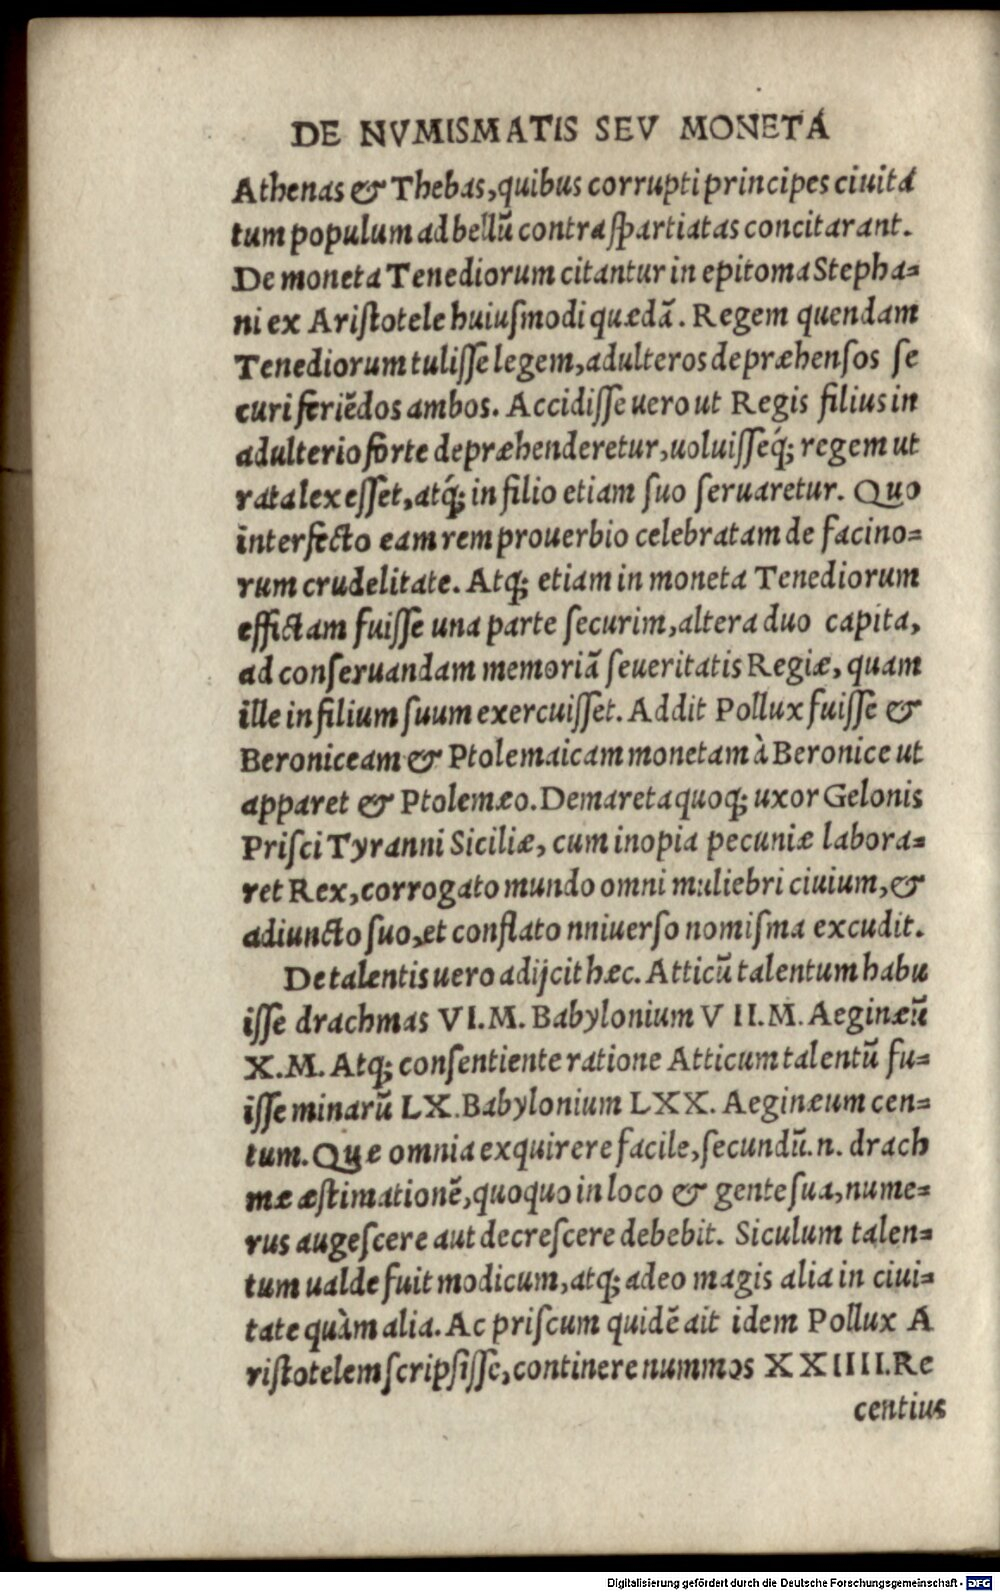 DE NVMISMATIS SEV MONETA
Athenas & Thebas, quibus corrupti principes ciuita
tum populum ad bellũ contra ſpartiatas concitarant.
De moneta Tenediorum citantur in epitoma Stepha-
ni ex Ariſtotele huiuſmodi quædã. Regem quendam
Tenediorum tuliſſe legem, adulteros depræhenſos ſe
curi feriẽdos ambos. Accidiſſe uero ut Regis filius in
adulterio forte depræhenderetur, uoluiſſeq́; regem ut
rata lex eſſet, atq́; in filio etiam ſuo ſeruaretur. Quo
interfecto eam rem prouerbio celebratam de facino-
rum crudelitate. Atq; etiam in moneta Tenediorum
effictam fuiſſe una parte ſecurim, altera duo capita,
ad conſeruandam memoriã ſeueritatis Regiæ, quam
ille in filium ſuum exercuiſſet. Addit Pollux fuiſſe &
Beroniceam & Ptolemaicam monetam à Beronice ut
apparet & Ptolemæo. Demareta quoq; uxor Gelonis
Priſci Tyranni Siciliæ, cum inopia pecuniæ labora-
ret Rex, corrogato mundo omni muliebri ciuium, &
adiuncto ſuo, et conflato nniuerſo nomiſma excudit.
De talentis uero adijcit hæc. Atticũ talentum habu
iſſe drachmas VI. M. Babylonium VII. M. Aeginæũ
X. M. Atq; conſentiente ratione Atticum talentũ fu-
iſſe minarũ LX. Babylonium LXX. Aeginæum cen-
tum. Quæ omnia exquirere facile, ſecundũ .n. drach
mæ æſtimationẽ, quoquo in loco & gente ſua, nume-
rus augeſcere aut decreſcere debebit. Siculum talen-
tum ualde fuit modicum, atq; adeo magis alia in ciui-
tate quàm alia. Ac priſcum quidẽ ait idem Pollux A
riſtotelem ſcripſiſſe, continere nummos XXIIII. Re
centius
Digitalisierung gefördert durch die Deutsche Forschungsgemeinschaft - DFG